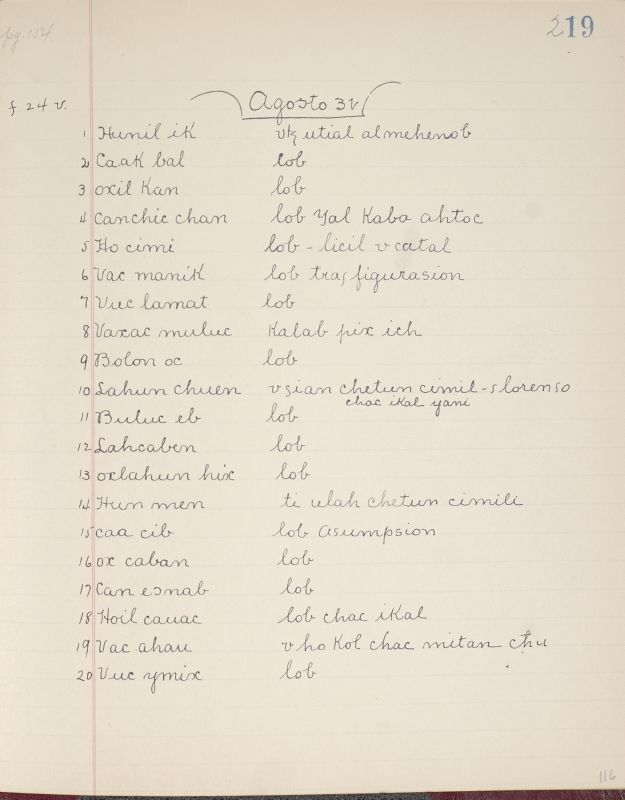 pg. 154.
219
f 24 v.
Agosto 31
1 Hunil ik utial almehenob
2 Caak bal lob
3 oxil Kan lob
4 Canchic chan lob Yal Kaba ahtoc
5 Ho cimi lob - licil v catal
6 Vac manik lob trasfigurasion
7 Vuc lamat lob
8 Vaxac muluc Kalab pix ich
9 Bolon oc lob
10 Lahun chuen v sian chetun cimil - s lorenso
chac ikal yani
11 Buluc eb lob
12 Lahcaben lob
13 oxlahun hix lob
14 Hun men ti ulah chetun cimili
15 caa cib lob asumpsion
16 ox caban lob
17 Can esnab lob
18 Hoil cauac lob chac ikal
19 Vac ahau v ho Kol chac mitan chu
20 Vuc ymix lob
116